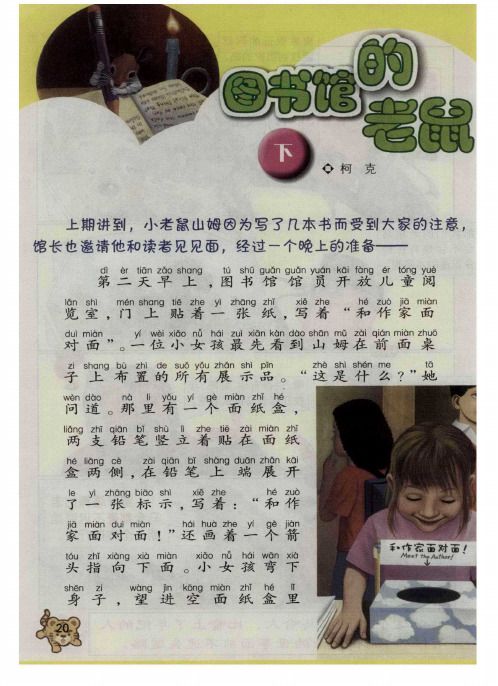 图书馆的
老鼠
下
柯 克
上期讲到，小老鼠山姆因为写了几本书而受到大家的注意，
馆长也邀请他和读者见见面，经过一个晚上的准备——
dì èr tiān zǎo shang tú shū guǎn guǎn yuán kāi fàng ér tóng yuè
第二天早上，图书馆馆员开放儿童阅
lǎn shì mén shang tiē zhe yì zhāng zhǐ xiě zhe hé zuò jiā miàn
览室，门上贴着一张纸，写着“和作家面
duì miàn yí wèi xiǎo nǚ hái zuì xiān kàn dào shān mǔ zài qián miàn zhuō
对面”。一位小女孩最先看到山姆在前面桌
zi shang bù zhì de suǒ yǒu zhǎn shì pǐn zhè shì shén me tā
子上布置的所有展示品。“这是什么？”她
wèn dào nà li yǒu yí gè miàn zhǐ hé
问道。那里有一个面纸盒，
liǎng zhī qiān bǐ shù lì zhe tiē zài miàn zhǐ
两支铅笔竖立着贴在面纸
hé liǎng cè zài qiān bǐ shàng duān zhǎn kāi
盒两侧，在铅笔上端展开
le yì zhāng biāo shì xiě zhe hé zuò
了一张标示，写着：“和作
jiā miàn duì miàn hái huà zhe yí gè jiàn
家面对面！”还画着一个箭
tóu zhǐ xiàng xià miàn xiǎo nǚ hái wān xià
头指向下面。小女孩弯下
shēn zi wàng jìn kōng miàn zhǐ hé lǐ
身子，望进空面纸盒里
和作家面对面！
Meet the Author!
20